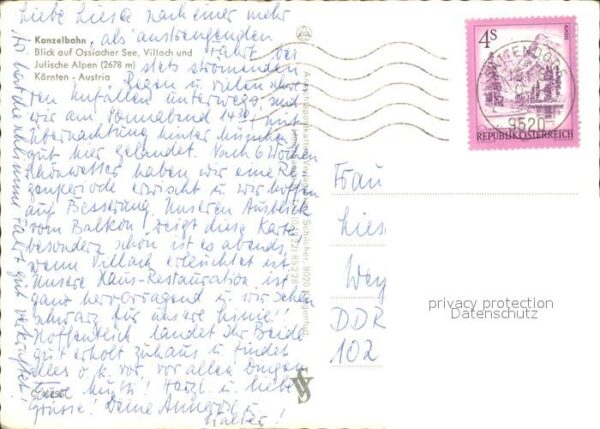 Liebe Liesa nach einer mehr
Kanzelbahn
als anstrengenden
Blick auf Ossiacher See, Villach und
Fahrt bei
Julische Alpen (2678 m)
stets strömenden
Kärnten - Austria
Regen u. vielen
ren Unfällen unterwegs, sind
wir am Sonnabend 14.30, mit
Übernachtung hinter München
gut hier gelandet. Nach 6 Wochen
Schönwetter haben wir eine Re-
genperiode erwischt u. wir hoffen
auf Besserung. Unseren Ausblick
vom Balkon zeigt diese Karte
besonders schön ist es abends
wenn Villach erleuchtet ist.
Unsere Haus-Restauration ist
ganz hervorragend u. wir sehen
schwarz für unsere Linie!!
Hoffentlich landet Ihr Beide
gut erholt zuhaus u. findet
alles o.k. vor, vor allen Dingen
Herzl. u. liebe
Grüsse! Deine Annerose u.
Walter!
Fahrt gut verkraftet!
4S
REPUBLIK ÖSTERREICH
9520
Frau
Lies
Wey
DDR
102
privacy protection
Datenschutz